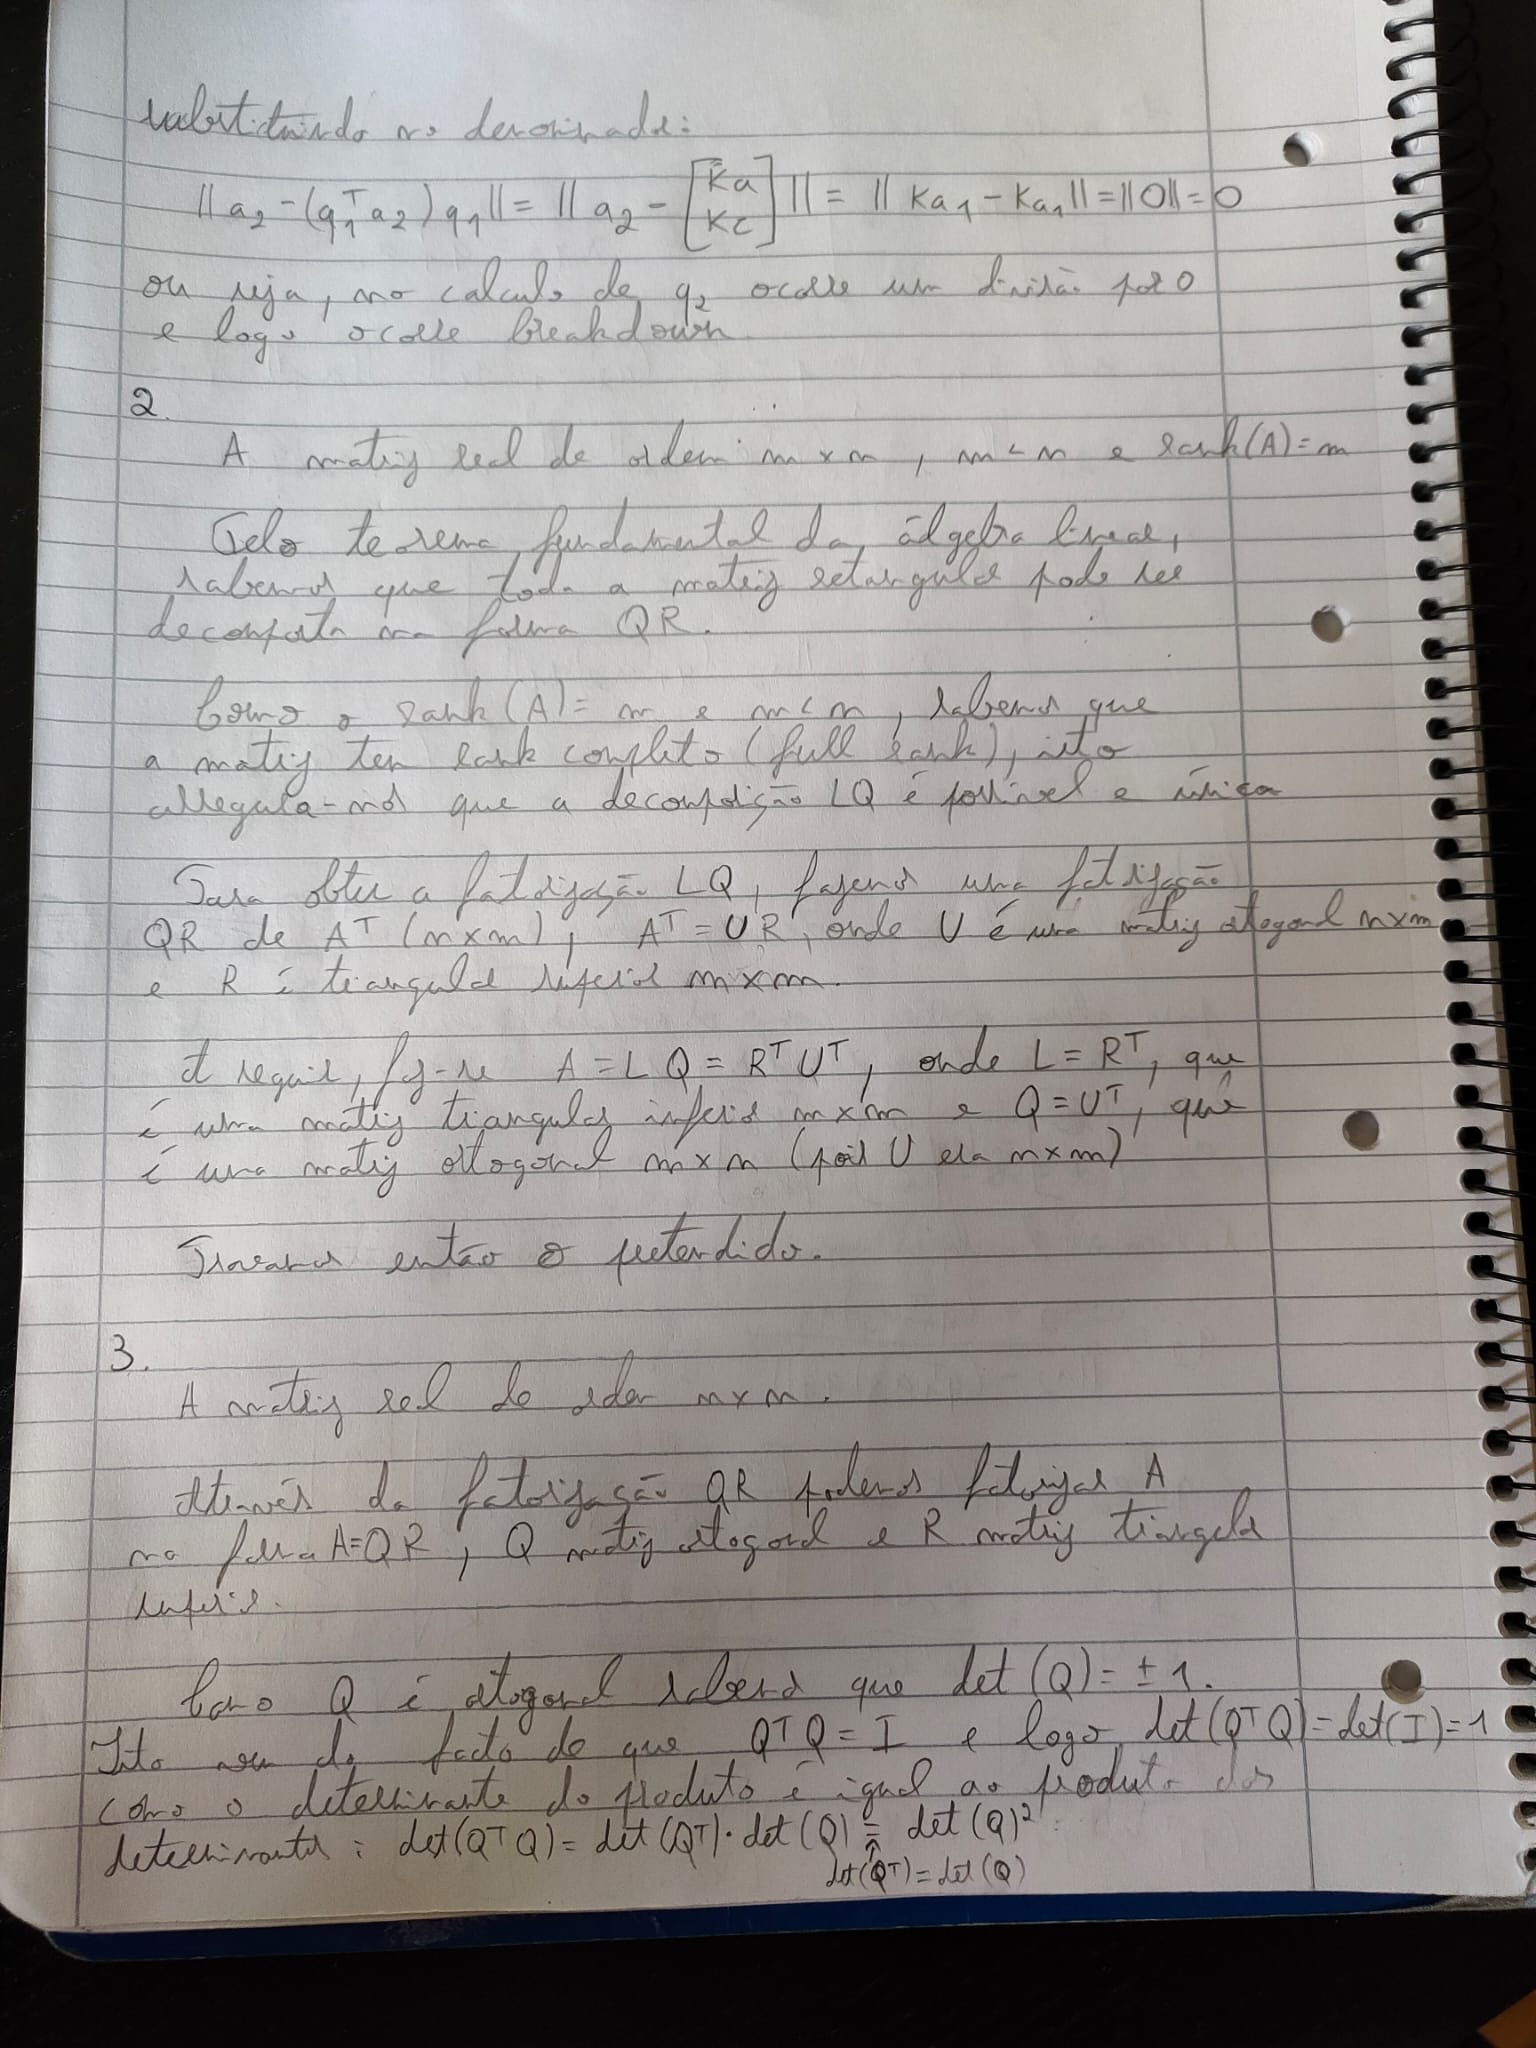 substituindo no denominador:
|| a₂ - (q₁ᵀ a₂) q₁ || = || a₂ - [ka kc] || = || ka₁ - ka₁ || = ||0|| = 0
ou seja, no calculo de q₂ ocorre um divisão por 0
e logo ocorre breakdown.
2.
A matriz real de ordem m x n, m < n e rank(A) = m
Pelo teorema fundamental da álgebra linear,
sabemos que toda a matriz retangular pode ser
decomposta na forma QR.
Como o rank(A) = m e m < n, sabemos que
a matriz tem rank completo (full rank), isto
assegura-nos que a decomposição LQ é possível e única
Para obter a fatorização LQ, fazemos uma fatorização
QR de Aᵀ (n x m), Aᵀ = UR, onde U é uma matriz ortogonal n x m
e R é triangular superior m x m.
A seguir, faz-se A = LQ = Rᵀ Uᵀ, onde L = Rᵀ, que
é uma matriz triangular inferior m x m e Q = Uᵀ, que
é uma matriz ortogonal m x n (pois U era n x m)
Provamos então o pretendido.
3.
A matriz real de ordem n x n.
Através da fatorização QR podemos fatorizar A
na forma A = QR, Q matriz ortogonal e R matriz triangular
superior.
Como Q é ortogonal sabemos que det(Q) = ± 1.
Isto vem do facto de que QᵀQ = I e logo det(QᵀQ) = det(I) = 1
como o determinante do produto é igual ao produto dos
determinantes: det(QᵀQ) = det(Qᵀ) · det(Q) = det(Q)²
↑
det(Qᵀ) = det(Q)